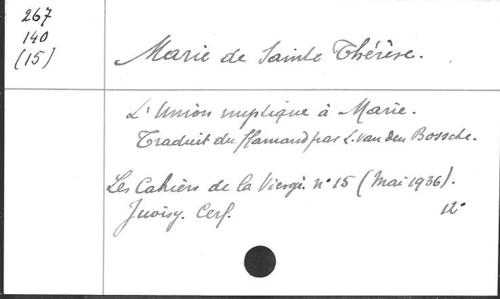 267
140
(15)
Marie de Sainte Thérèse.
L'Union mystique à Marie.
Traduit du flamand par L. van den Bossche.
Les Cahiers de la Vierge. n° 15 (Mai 1936).
Juvisy. Cerf. 12°